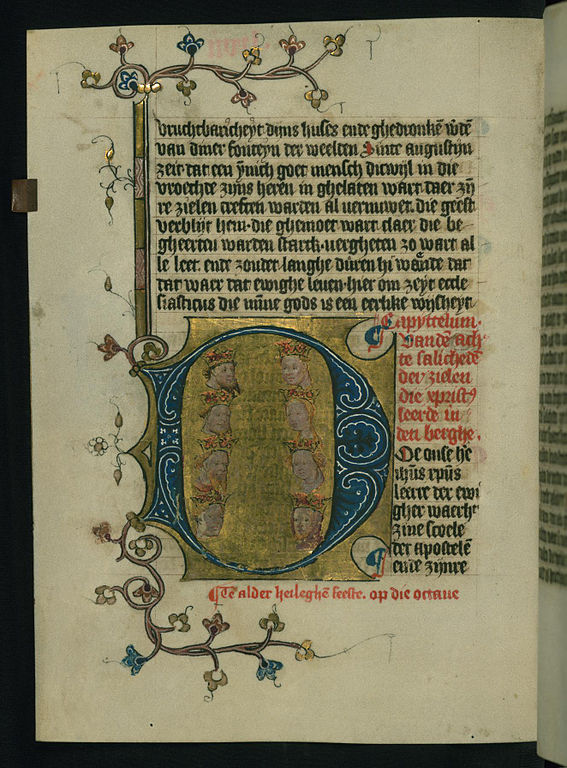 vruchtbaricheyt dijns huses ende ghedronkē wdē
van dijner fonteyn der weelten. Sinte augustijn
zeit dat een ynich goet mensch dicwijl in die
vroechde zijns heren in ghelaten wart daer zij
re zielen creften warden al vernuwet. die geest
verblijt hem. die ghemoet wart claer die be
gheerten warden starck. vergheten zo wart al
le leet. ende zonder langhe duren hi wāende dat
dat waer dat ewighe leuen. hier om zeyt eccle
siasticus die minne gods is een eerlike wijsheyt
Capyttelum.
vandē ach
te salichedē
der zielen
die xpristꝰ
leerde in
den berghe.
Doe onse he
ihūs xpūs
leerre der ewi
gher waerht
zine scoele
der apostelē
ende zijnre
Te alder heileghē feeste. op die octaue